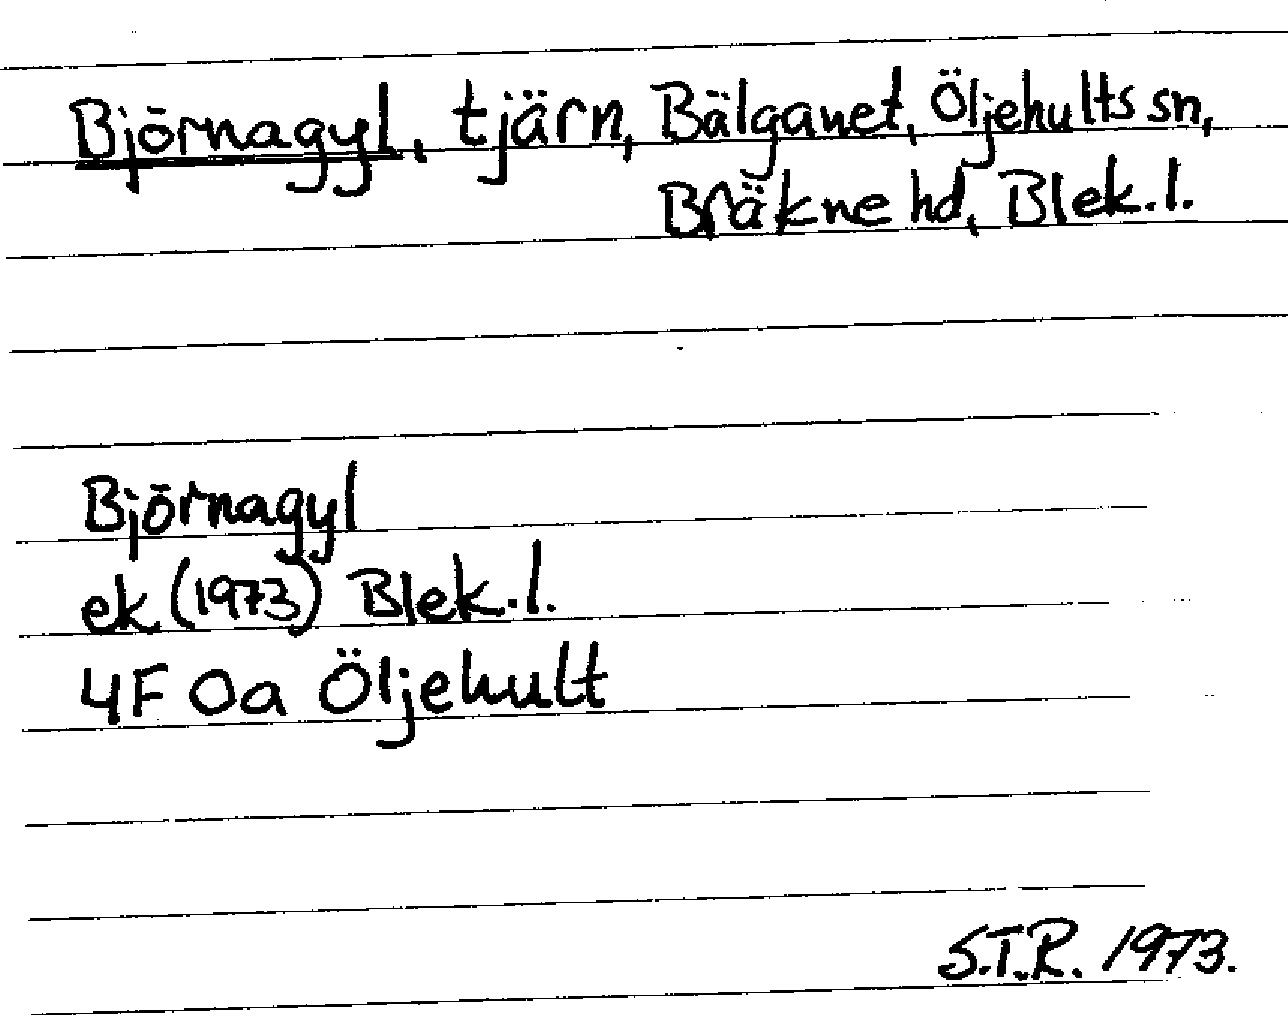 Björnagyl, tjärn, Bälganet, Öljehults sn,
Bräkne hd, Blek. l.
Björnagyl
ek (1973) Blek. l.
4F 0a Öljehult
S.T.R. 1973.